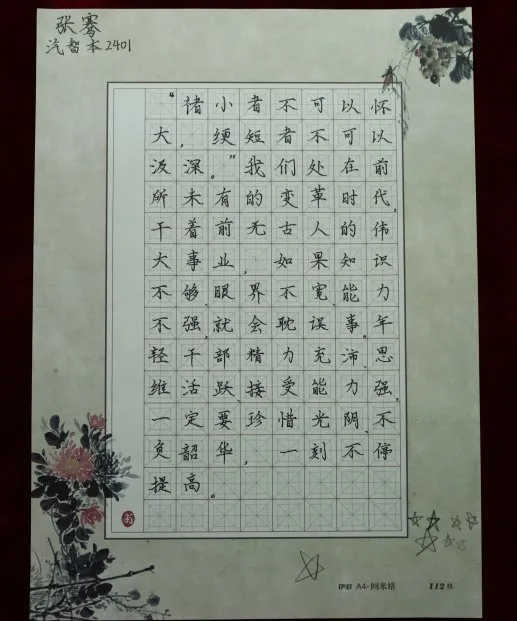 张骞
汽智本2401
“褚小者不可以怀
大,绠短者不可以
汲深。”我们处在前
所未有的变革时代,
干着前无古人的伟
大事业,如果知识
不够、眼界不宽、能力
不强,就会耽误事。年
轻干部精力充沛、思
维活跃、接受能力强,
一定要珍惜光阴、不
负韶华,一刻不停
提高。
A4-回米格
112格